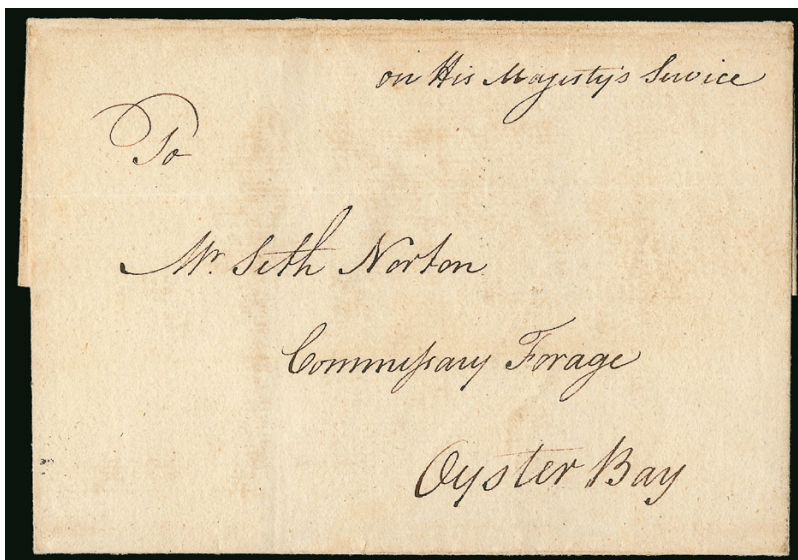 on His Majesty's Service
To
Mr. Seth Norton
Commiſsary Forage
Oyster Bay